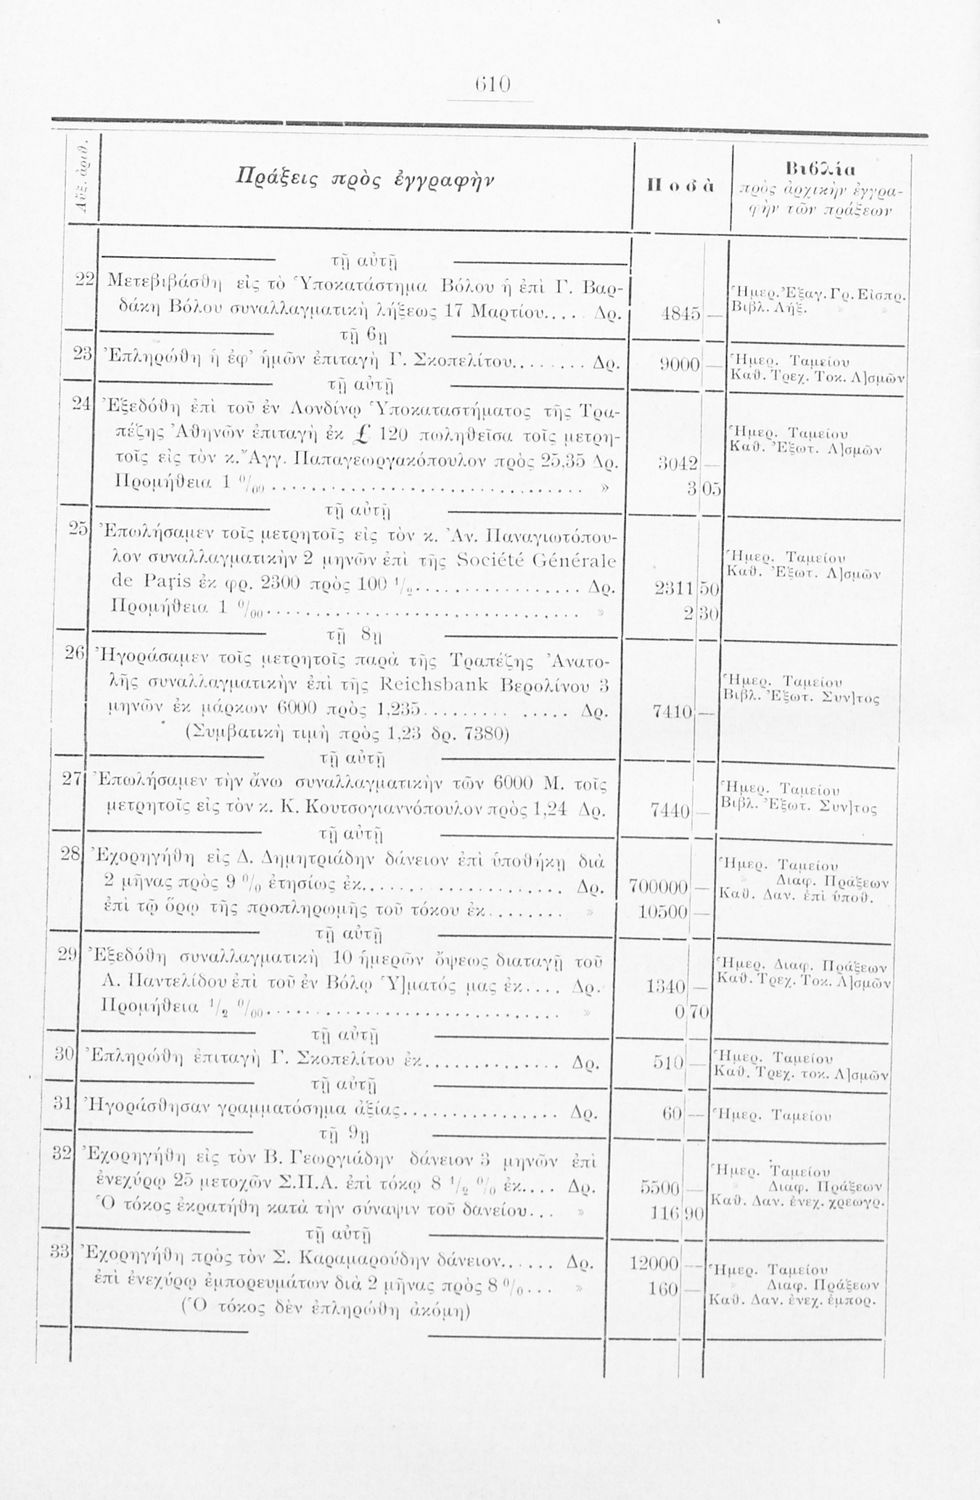 610
Αὔξ. ἀριθ.
Πράξεις πρὸς ἐγγραφὴν
Ποσὰ
Βιβλία
πρὸς ἀρχικὴν ἐγγρα-
φὴν τῶν πράξεων
τῇ αὐτῇ
22 Μετεβιβάσθη εἰς τὸ Ὑποκατάστημα Βόλου ἡ ἐπὶ Γ. Βαρ-
δάκη Βόλου συναλλαγματικὴ λήξεως 17 Μαρτίου.... Δρ. 4845 —
Ἡμερ. Ἐξαγ. Γρ. Εἰσπρ.
Βιβλ. Λήξ.
τῇ 6ῃ
23 Ἐπληρώθη ἡ ἐφ' ἡμῶν ἐπιταγὴ Γ. Σκοπελίτου......... Δρ. 9000 —
Ἡμερ. Ταμείου
Καθ. Τρεχ. Τοκ. Λ]σμῶν
τῇ αὐτῇ
24 Ἐξεδόθη ἐπὶ τοῦ ἐν Λονδίνῳ Ὑποκαταστήματος τῆς Τρα-
πέζης Ἀθηνῶν ἐπιταγὴ ἐκ £ 120 πωληθεῖσα τοῖς μετρη-
τοῖς εἰς τὸν κ. Ἄγγ. Παπαγεωργακόπουλον πρὸς 25,35 Δρ. 3042 —
Προμήθεια 1 ⁰/₀₀ .............................. » 3 05
Ἡμερ. Ταμείου
Καθ. Ἐξωτ. Λ]σμῶν
τῇ αὐτῇ
25 Ἐπωλήσαμεν τοῖς μετρητοῖς εἰς τὸν κ. Ἀν. Παναγιωτόπου-
λον συναλλαγματικὴν 2 μηνῶν ἐπὶ τῆς Société Générale
de Paris ἐκ φρ. 2300 πρὸς 100 ¹/₂................ Δρ. 2311 50
Προμήθεια 1 ⁰/₀₀.............................. » 2 30
Ἡμερ. Ταμείου
Καθ. Ἐξωτ. Λ]σμῶν
τῇ 8ῃ
26 Ἠγοράσαμεν τοῖς μετρητοῖς παρὰ τῆς Τραπέζης Ἀνατο-
λῆς συναλλαγματικὴν ἐπὶ τῆς Reichsbank Βερολίνου 3
μηνῶν ἐκ μάρκων 6000 πρὸς 1,235............... Δρ. 7410 —
(Συμβατικὴ τιμὴ πρὸς 1,23 δρ. 7380)
Ἡμερ. Ταμείου
Βιβλ. Ἐξωτ. Συν]τος
τῇ αὐτῇ
27 Ἐπωλήσαμεν τὴν ἄνω συναλλαγματικὴν τῶν 6000 Μ. τοῖς
μετρητοῖς εἰς τὸν κ. Κ. Κουτσογιαννόπουλον πρὸς 1,24 Δρ. 7440 —
Ἡμερ. Ταμείου
Βιβλ. Ἐξωτ. Συν]τος
τῇ αὐτῇ
28 Ἐχορηγήθη εἰς Δ. Δημητριάδην δάνειον ἐπὶ ὑποθήκῃ διὰ
2 μῆνας πρὸς 9 ⁰/₀ ἐτησίως ἐκ.................... Δρ. 700000 —
ἐπὶ τῷ ὅρῳ τῆς προπληρωμῆς τοῦ τόκου ἐκ......... » 10500 —
Ἡμερ. Ταμείου
» Διαφ. Πράξεων
Καθ. Δαν. ἐπὶ ὑποθ.
τῇ αὐτῇ
29 Ἐξεδόθη συναλλαγματικὴ 10 ἡμερῶν ὄψεως διαταγῇ τοῦ
Α. Παντελίδου ἐπὶ τοῦ ἐν Βόλῳ Ὑ]ματός μας ἐκ.... Δρ. 1340 —
Προμήθεια ¹/₂ ⁰/₀₀.............................. » 0 70
Ἡμερ. Διαφ. Πράξεων
Καθ. Τρεχ. Τοκ. Λ]σμῶν
τῇ αὐτῇ
30 Ἐπληρώθη ἐπιταγὴ Γ. Σκοπελίτου ἐκ............... Δρ. 510 —
Ἡμερ. Ταμείου
Καθ. Τρεχ. τοκ. Λ]σμῶν
τῇ αὐτῇ
31 Ἠγοράσθησαν γραμματόσημα ἀξίας................ Δρ. 60 —
Ἡμερ. Ταμείου
τῇ 9ῃ
32 Ἐχορηγήθη εἰς τὸν Β. Γεωργιάδην δάνειον 3 μηνῶν ἐπὶ
ἐνεχύρῳ 25 μετοχῶν Σ.Π.Α. ἐπὶ τόκῳ 8 ¹/₂ ⁰/₀ ἐκ.... Δρ. 5500 —
Ὁ τόκος ἐκρατήθη κατὰ τὴν σύναψιν τοῦ δανείου... » 116 90
Ἡμερ. Ταμείου
» Διαφ. Πράξεων
Καθ. Δαν. ἐνεχ. χρεωγρ.
τῇ αὐτῇ
33 Ἐχορηγήθη πρὸς τὸν Σ. Καραμαρούδην δάνειον...... Δρ. 12000 —
ἐπὶ ἐνεχύρῳ ἐμπορευμάτων διὰ 2 μῆνας πρὸς 8 ⁰/₀... » 160 —
(Ὁ τόκος δὲν ἐπληρώθη ἀκόμη)
Ἡμερ. Ταμείου
» Διαφ. Πράξεων
Καθ. Δαν. ἐνεχ. ἐμπορ.